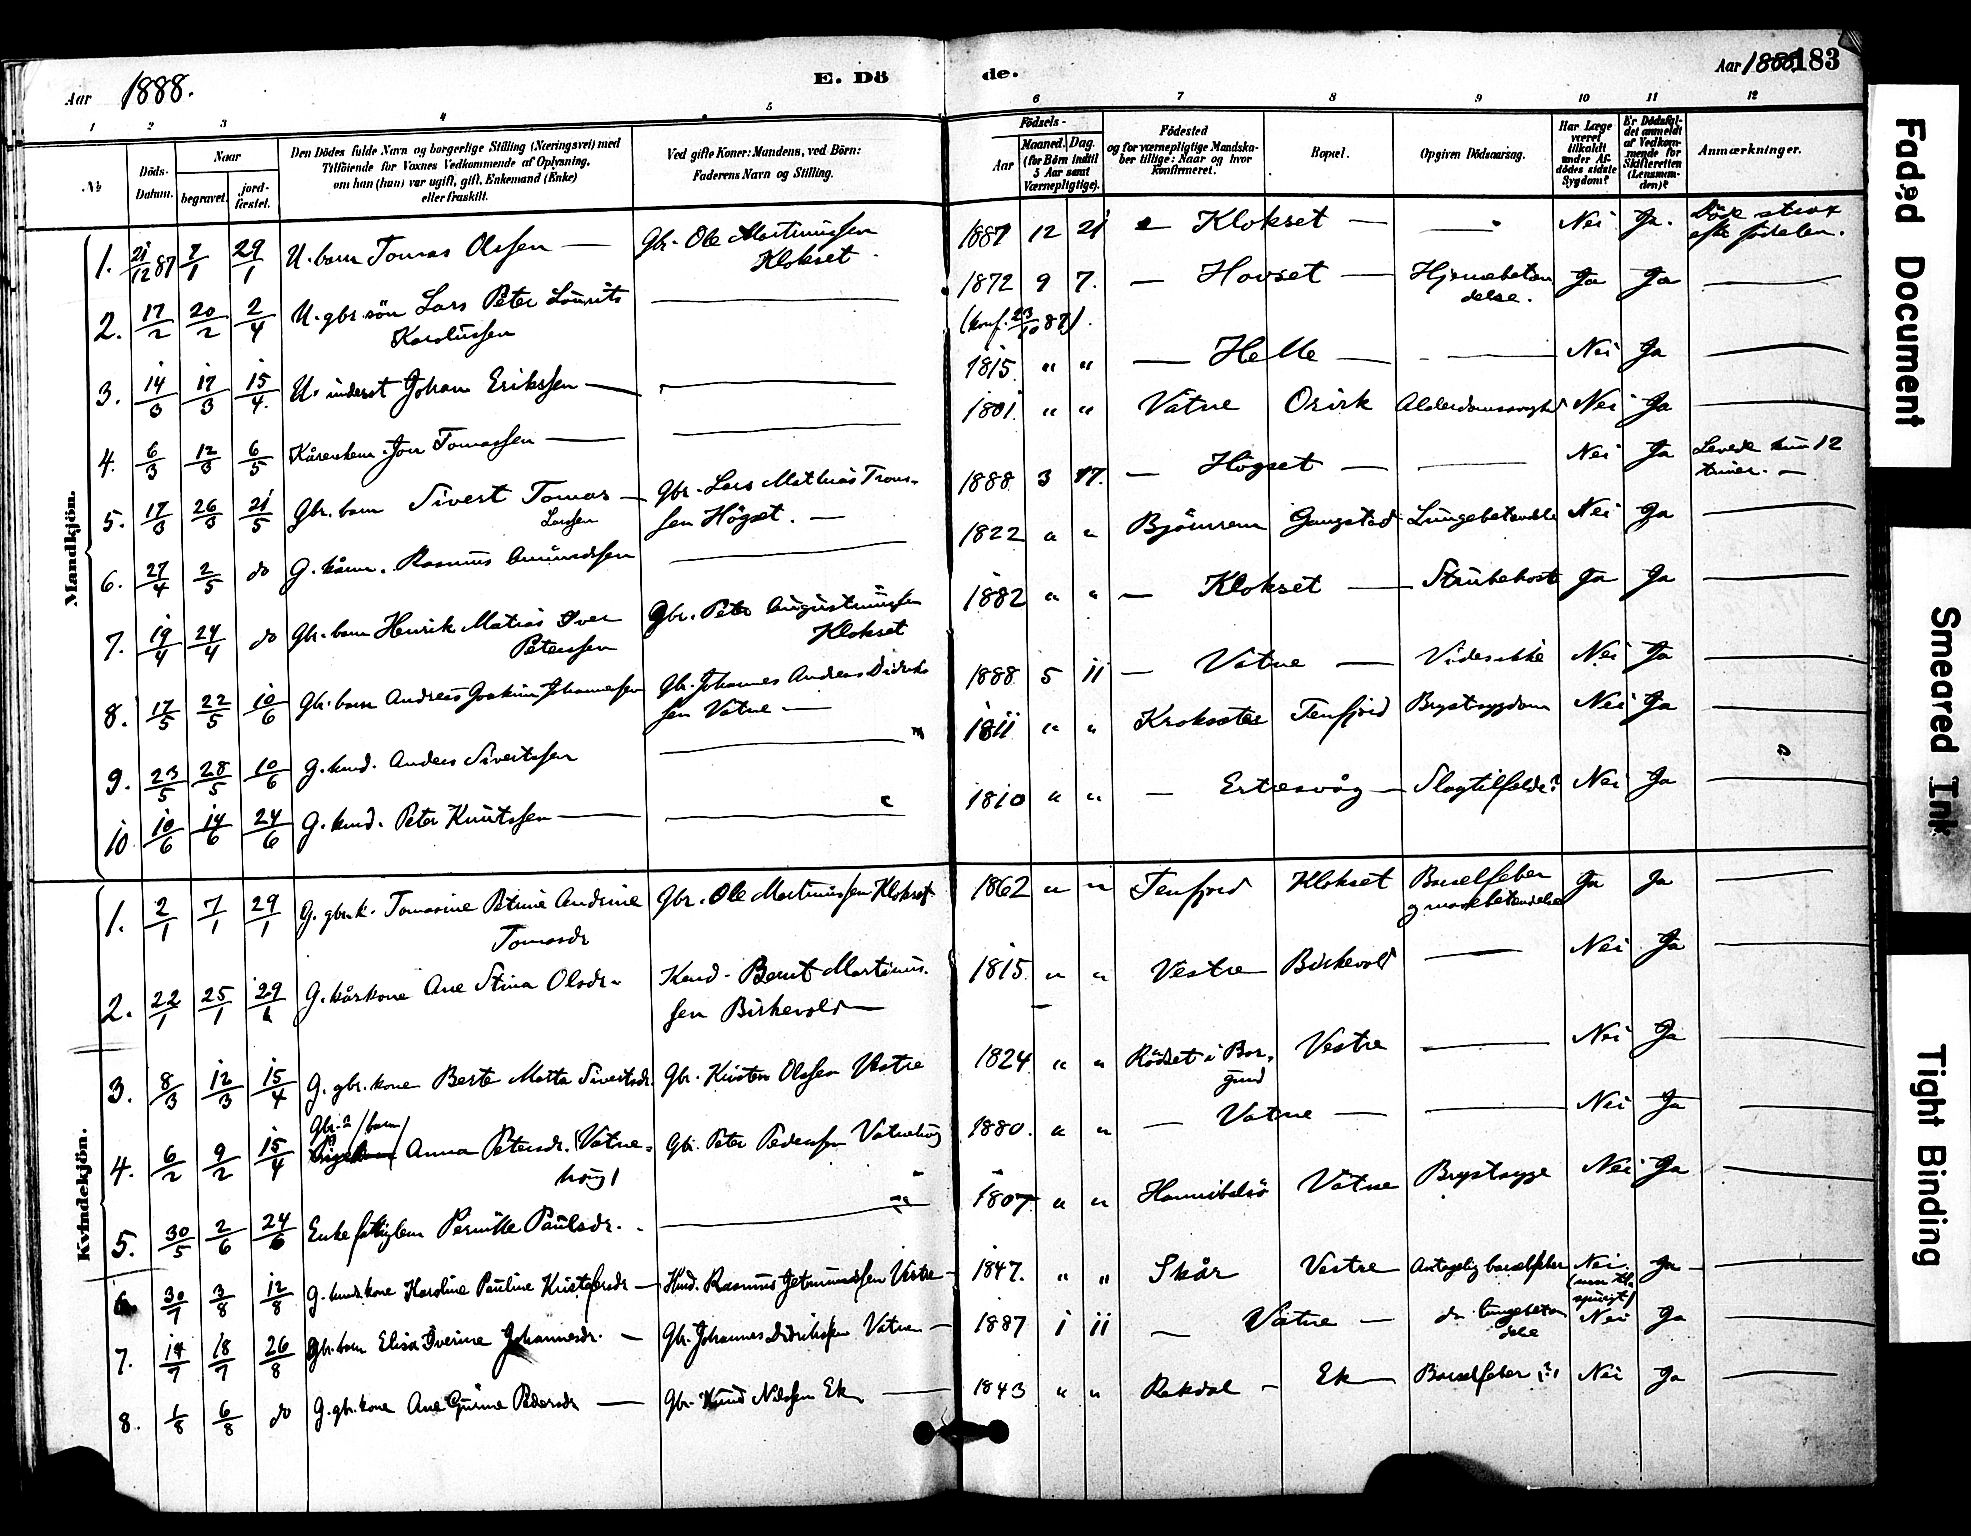 Aar 1888. E. Dö de. Aar 1888. 183
1 2 3 4 5 6 7 8 9 10 11 12
№
Döds-Datum.
Naar
begravet.
jord-fæstet.
Den Dödes fulde Navn og borgerlige Stilling (Næringsvei) med
Tilföiende for Voxnes Vedkommende af Oplysning,
om han (hun) var ugift, gift, Enkemand (Enke)
eller fraskilt.
Ved gifte Koner: Mandens, ved Börn:
Faderens Navn og Stilling.
Födsels-
Aar
Maaned. Dag.
(for Börn indtil
5 Aar samt
Værnepligtige).
Födested
og for værnepligtige Mandska-
ber tillige: Naar og hvor
konfirmeret.
Bopæl.
Opgiven Dödsaarsag.
Har Læge
været
tilkaldt
under Af-
dödes sidste
Sygdom?
Er Dödsfal-
det anmeldt
af Vedkom-
mende for
Skifteretten
(Lensman-
den)?
Anmærkninger.
Mandkjön.
1. 21/12 87 7/1 29/1 U. barn Tomas Olssen — Gbr. Ole Martinussen
Klokset. 1887 12 21 — Klokset — — Nei Ja. Döde strax
efter födselen.
2. 17/2 20/2 2/4 U. gbr. sön Lars Peter Lourits
Karolussen — 1872 9 7. — Hovset — Hjernebetæn
delse. Ja Ja —
(konf. 23/10 87).
3. 14/3 17/3 15/4. U. inderst Johan Erikssen — — 1815 " " — Helle — — Nei Ja —
4. 6/3 12/3 6/5 Kårenkem. Jon Tomassen — — 1801 " " Vatne Osvik Alderdomssvaghed Nei Ja —
5. 17/3 26/3 21/5 Gbr. barn Sivert Tomas —
Larssen Gbr. Lars Mathias Troms-
sen Högset. — 1888 3 17. — Högset — — Nei Ja Levede kun 12
timer. —
6. 27/4 2/5 do G. kårm. Rasmus Amundssen — 1822 " " Björnrem Gangstad Lungebetændelse Nei Ja —
7. 19/4 24/4 do Gbr. barn Henrik Matias Iver
Peterssen Gbr. Peter Augustinussen
Klokset 1882 " " — Klokset — Strubehoste Ja Ja —
8. 17/5 22/5 10/6 Gbr. barn Andreas Joakim Johannessen Gbr. Johannes Andreas Didriks
sen Vatne — 1888 5 11 — Vatne — Vides ikke Nei Ja —
9. 23/5 28/5 10/6 G. hmd. Anders Sivertssen — 1811 " " Kroksætre Tenfjord Brystsygdom Nei Ja —
10 10/6 14/6 24/6 G. hmd. Peter Knutssen — — 1810 " " — Ertesvåg — Slagtilfælde? Nei Ja —
Kvindekjön.
1. 2/1 7/1 29/1 G. gbr. k. Tomasine Petrine Andrine
Tomasdr Gbr. Ole Martinussen Klokset 1862 " " Tenfjord Klokset Barselfeber
og mavebetændelse Ja Ja —
2. 22/1 25/1 29/1 G. kårkone Ane Stina Olsdr. Hmd. Bernt Martinus-
sen Birkevold — 1815 " " Vestre Birkevold — Nei Ja —
3. 8/3 12/3 15/4 G. gbr. kone Berte Marta Sivertsdr. Gbr. Kirsten Olssen Vestre 1824 " " Rödset i Bor-
gund Vestre — Nei Ja —
4. 6/2 9/2 15/4 Gbr. s /barn/
Anna Petersdr. (Vatne-
haug) Gbr. Peter Pederssen Vatnehaug 1880. " " — Vatne — — Nei Ja —
5. 30/5 2/6 24/6 Enke fattiglem Pernille Paulsdr. — 1807 " " Hannibalsö Vatne Brystsyge Nei Ja —
6 30/7 3/8 12/8 G. hmds kone Karoline Pauline Kristofersdr — Hmd. Rasmus Jetmundssen Vestre — 1847. " " Skår Vestre Antagelig barselfeber Nei. Ja —
7. 14/7 18/7 26/8 Gbr. barn Elisa Iverine Johannesdr. — Gbr. Johannes Didrikssen Vatne — 1887 1 11 — Vatne — do lungebetæn
delse Nei Ja —
8. 1/8 6/8 do G. gbr. kone Ane Gurine Pedersdr — Gbr. Knud Nilssen Ek — 1843 " " Rekdal — Ek Barselfeber (?) Nei Ja —
Faded Document
Smeared Ink
Tight Binding